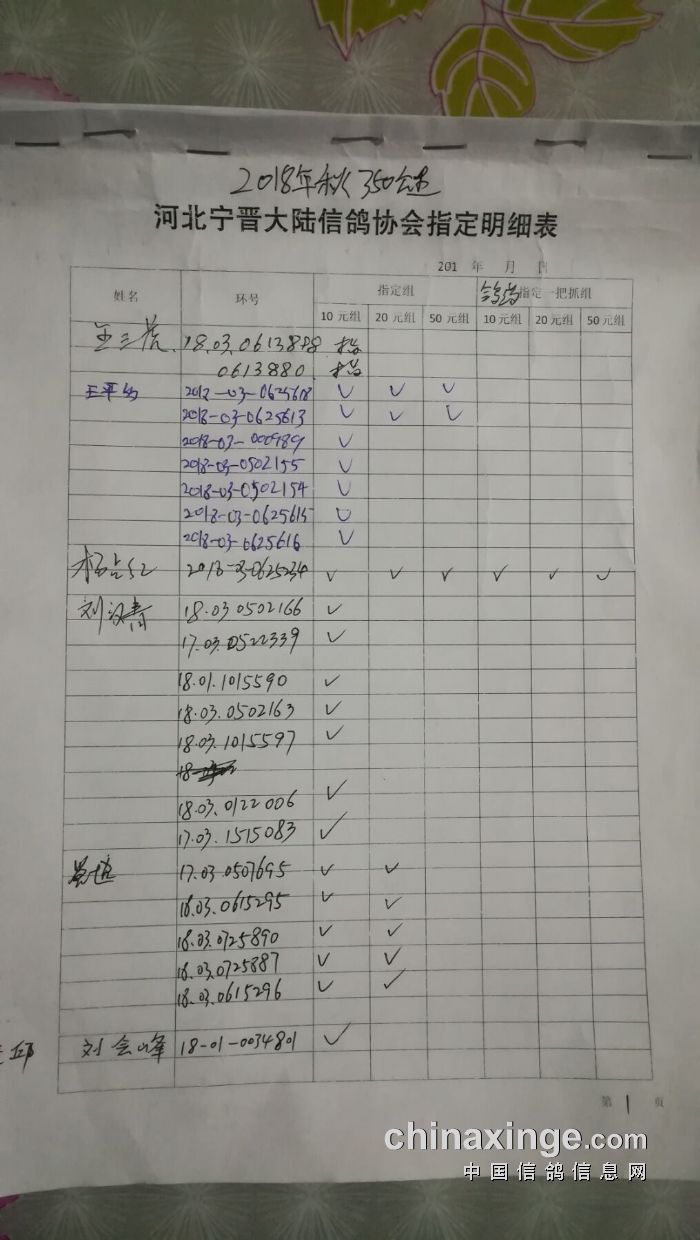 2018年秋350公里
河北宁晋大陆信鸽协会指定明细表
201 年 月 日
姓名 环号 指定组 指定一把抓组
10元组 20元组 50元组 10元组 20元组 50元组
王三 18.03.0613888
0613880
王平 2018-03-0625618 ✓ ✓ ✓
2018-03-0625613 ✓ ✓ ✓
2018-03-000989 ✓
2018-03-0502155 ✓
2018-03-0502154 ✓
2018-03-0625615 ✓
2018-03-0625616 ✓
2018-03-0625234 ✓ ✓ ✓ ✓ ✓ ✓
刘汉青 18.03.0502166 ✓
17.03.0522339 ✓
18.01.1015590 ✓
18.03.0502163 ✓
18.03.1015597 ✓
18.03.0122006 ✓
17.03.1515083 ✓
17.03.0507695 ✓ ✓
18.03.0615295 ✓ ✓
18.03.0725890 ✓ ✓
18.03.0725887 ✓ ✓
18.03.0615296 ✓ ✓
邱 刘会峰 18-01-0034801 ✓
第 1 页
chinaxinge.com
中国信鸽信息网